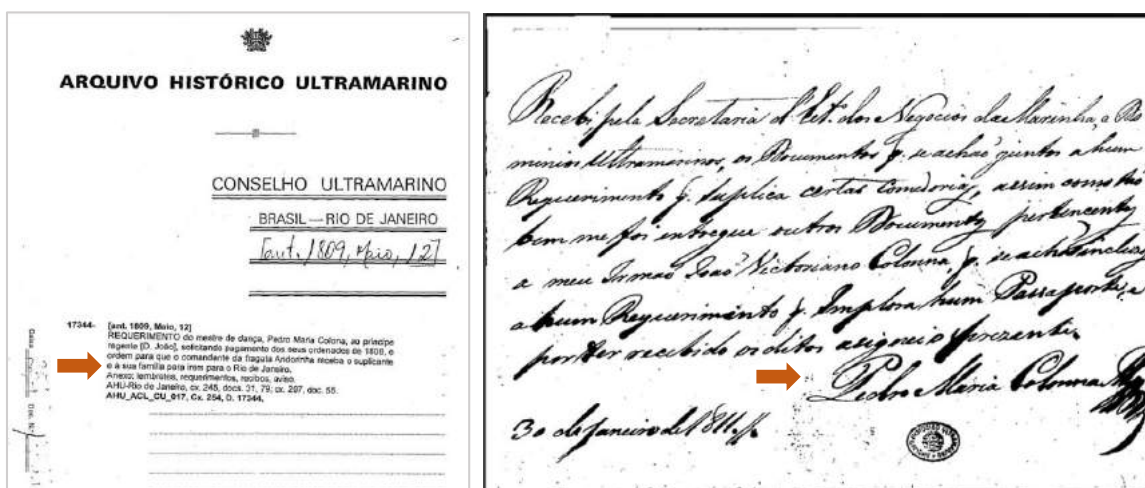 ARQUIVO HISTÓRICO ULTRAMARINO
CONSELHO ULTRAMARINO
BRASIL — RIO DE JANEIRO
[ant. 1809, Maio, 12]
17344- [ant. 1809, Maio, 12]
REQUERIMENTO do mestre de dança, Pedro Maria Colona, ao príncipe
regente [D. João], solicitando pagamento dos seus ordenados de 1808, e
ordem para que o comandante da fragata Andorinha receba o suplicante
e à sua família para irem para o Rio de Janeiro.
Anexo: lembretes, requerimentos, recibos, aviso.
AHU-Rio de Janeiro, cx. 245, docs. 31, 79, cx. 207, doc. 55.
AHU_ACL_CU_017, Cx. 254, D. 17344.
Recebi, pela Secretaria d'Est.º dos Negocios da Marinha, e Do
minios Ultramarinos, os Documentos q. se achaõ juntos a hum
Requerimento q. Suplica certas Comedorias, assim como tão
bem me foi entregue outros Documentos pertencentes
a meu Irmaõ Joaõ Victoriano Colonna, q. se achaõ inclusos
a hum Requerimento q. Implora hum Passaporte, e
por ter recebido os ditos asigno o prezente.
Pedro Maria Colonna
30 de Janeiro de 1811